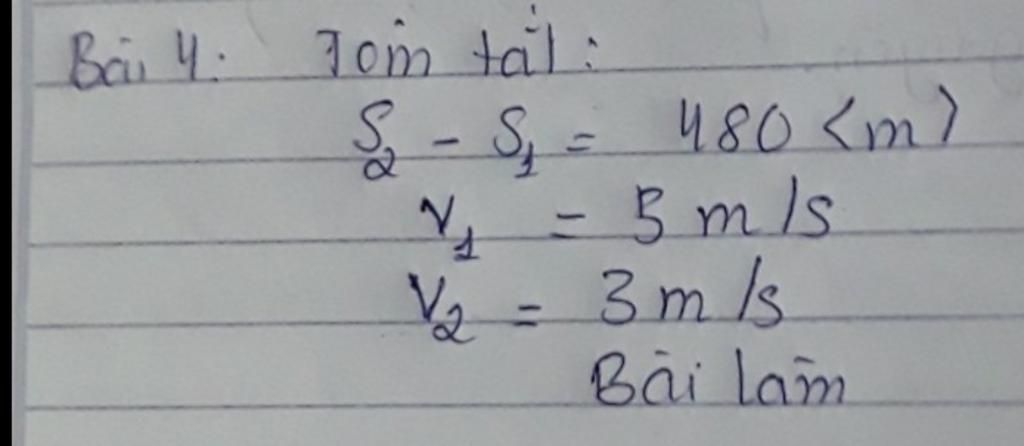 Bài 4: Tóm tắt:
S₂ - S₁ = 480 <m>
V₁ = 5 m/s
V₂ = 3 m/s
Bài làm